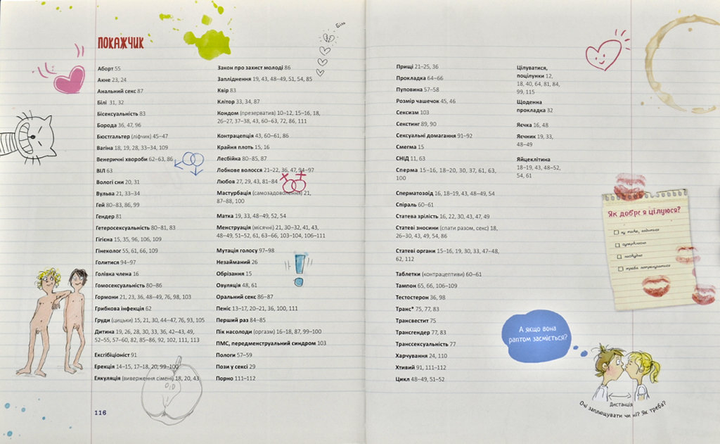 ПОКАЖЧИК
Аборт 55
Акне 23, 24
Анальний секс 87
Білі 31, 32
Бісексуальність 83
Борода 36, 47, 96
Бюстгальтер (ліфчик) 45–47
Вагіна 18, 19, 28, 33–34, 109
Венеричні хвороби 62–63, 86
ВІЛ 63
Вологі сни 20, 31
Вульва 21, 33–34
Геї 80–83, 86, 99
Гендер 81
Гетеросексуальність 80–81, 83
Гігієна 15, 35, 96, 106, 109
Гінеколог 55, 61, 66, 109
Голитися 94–97
Голівка члена 16
Гомосексуальність 80–86
Гормони 21, 23, 36, 48–49, 76, 98, 103
Грибкова інфекція 62
Груди (цицьки) 15, 21, 30, 44–47, 76, 93, 105
Дитина 19, 26, 28, 30, 33, 36, 42–43, 49,
52–55, 57–60, 82, 85–86, 92, 102, 111, 113
Ексгібіціоніст 91
Ерекція 14–15, 17–18, 20, 99–100
Еякуляція (виверження сімені) 18, 20, 43
116
Закон про захист молоді 86
Запліднення 19, 43, 48–49, 51, 54, 85
Квір 83
Клітор 33, 34, 87
Кондом (презерватив) 10–12, 15–16, 18,
26–27, 37–38, 43, 60–63, 72, 86, 111
Контрацепція 43, 60–61, 86
Крайня плоть 15, 16
Лесбійка 80–85, 87
Лобкове волосся 21–22, 36, 47, 94–97
Любов 27, 29, 43, 81–84
Мастурбація (самозадоволення) 21,
87–88, 100
Матка 19, 33, 48–49, 52, 54
Менструація (місячні) 21, 30–32, 41, 43,
48–49, 51–52, 61, 63–66, 103–104, 106–111
Мутація голосу 97–98
Незайманий 26
Обрізання 15
Овуляція 48, 61
Оральний секс 86–87
Пеніс 13–17, 20–21, 36, 100, 111
Перший раз 84–85
Пік насолоди (оргазм) 16–18, 87, 99–100
ПМС, передменструальний синдром 103
Пологи 57–59
Пози у сексі 29
Порно 111–112
Прищі 21–25, 36
Прокладка 64–66
Пуповина 57–58
Розмір чашечок 45, 46
Сексизм 103
Секстинг 89, 90
Сексуальні домагання 91–92
Смегма 15
СНІД 11, 63
Сперма 15–16, 18–20, 30, 37, 61, 63,
100
Сперматозоїд 16, 18–19, 43, 48–49, 54
Спіраль 60–61
Статева зрілість 16, 22, 30, 43, 47, 49
Статеві зносини (спати разом, секс) 18,
26–30, 43, 49, 54, 86
Статеві органи 15–16, 19, 30, 33, 47–48,
62, 112
Таблетки (контрацептиви) 60–61
Тампон 65, 66, 106–109
Тестостерон 36, 98
Транс* 75, 77, 83
Трансвестит 75
Трансгендер 77, 83
Транссексуальність 77
Харчування 24, 110
Хтивий 91, 111–112
Цикл 48–49, 51–52
Цілуватися,
поцілунки 12,
18, 40, 64, 81, 84,
99, 115
Щоденна
прокладка 32
Яєчка 16, 48
Яєчник 19, 33,
48–49
Яйцеклітина
18–19, 43, 48–52,
54, 61
Як добре я цілуюся?
А якщо вона
раптом засміється?
Дистанція
Очі заплющувати чи ні? Як треба?